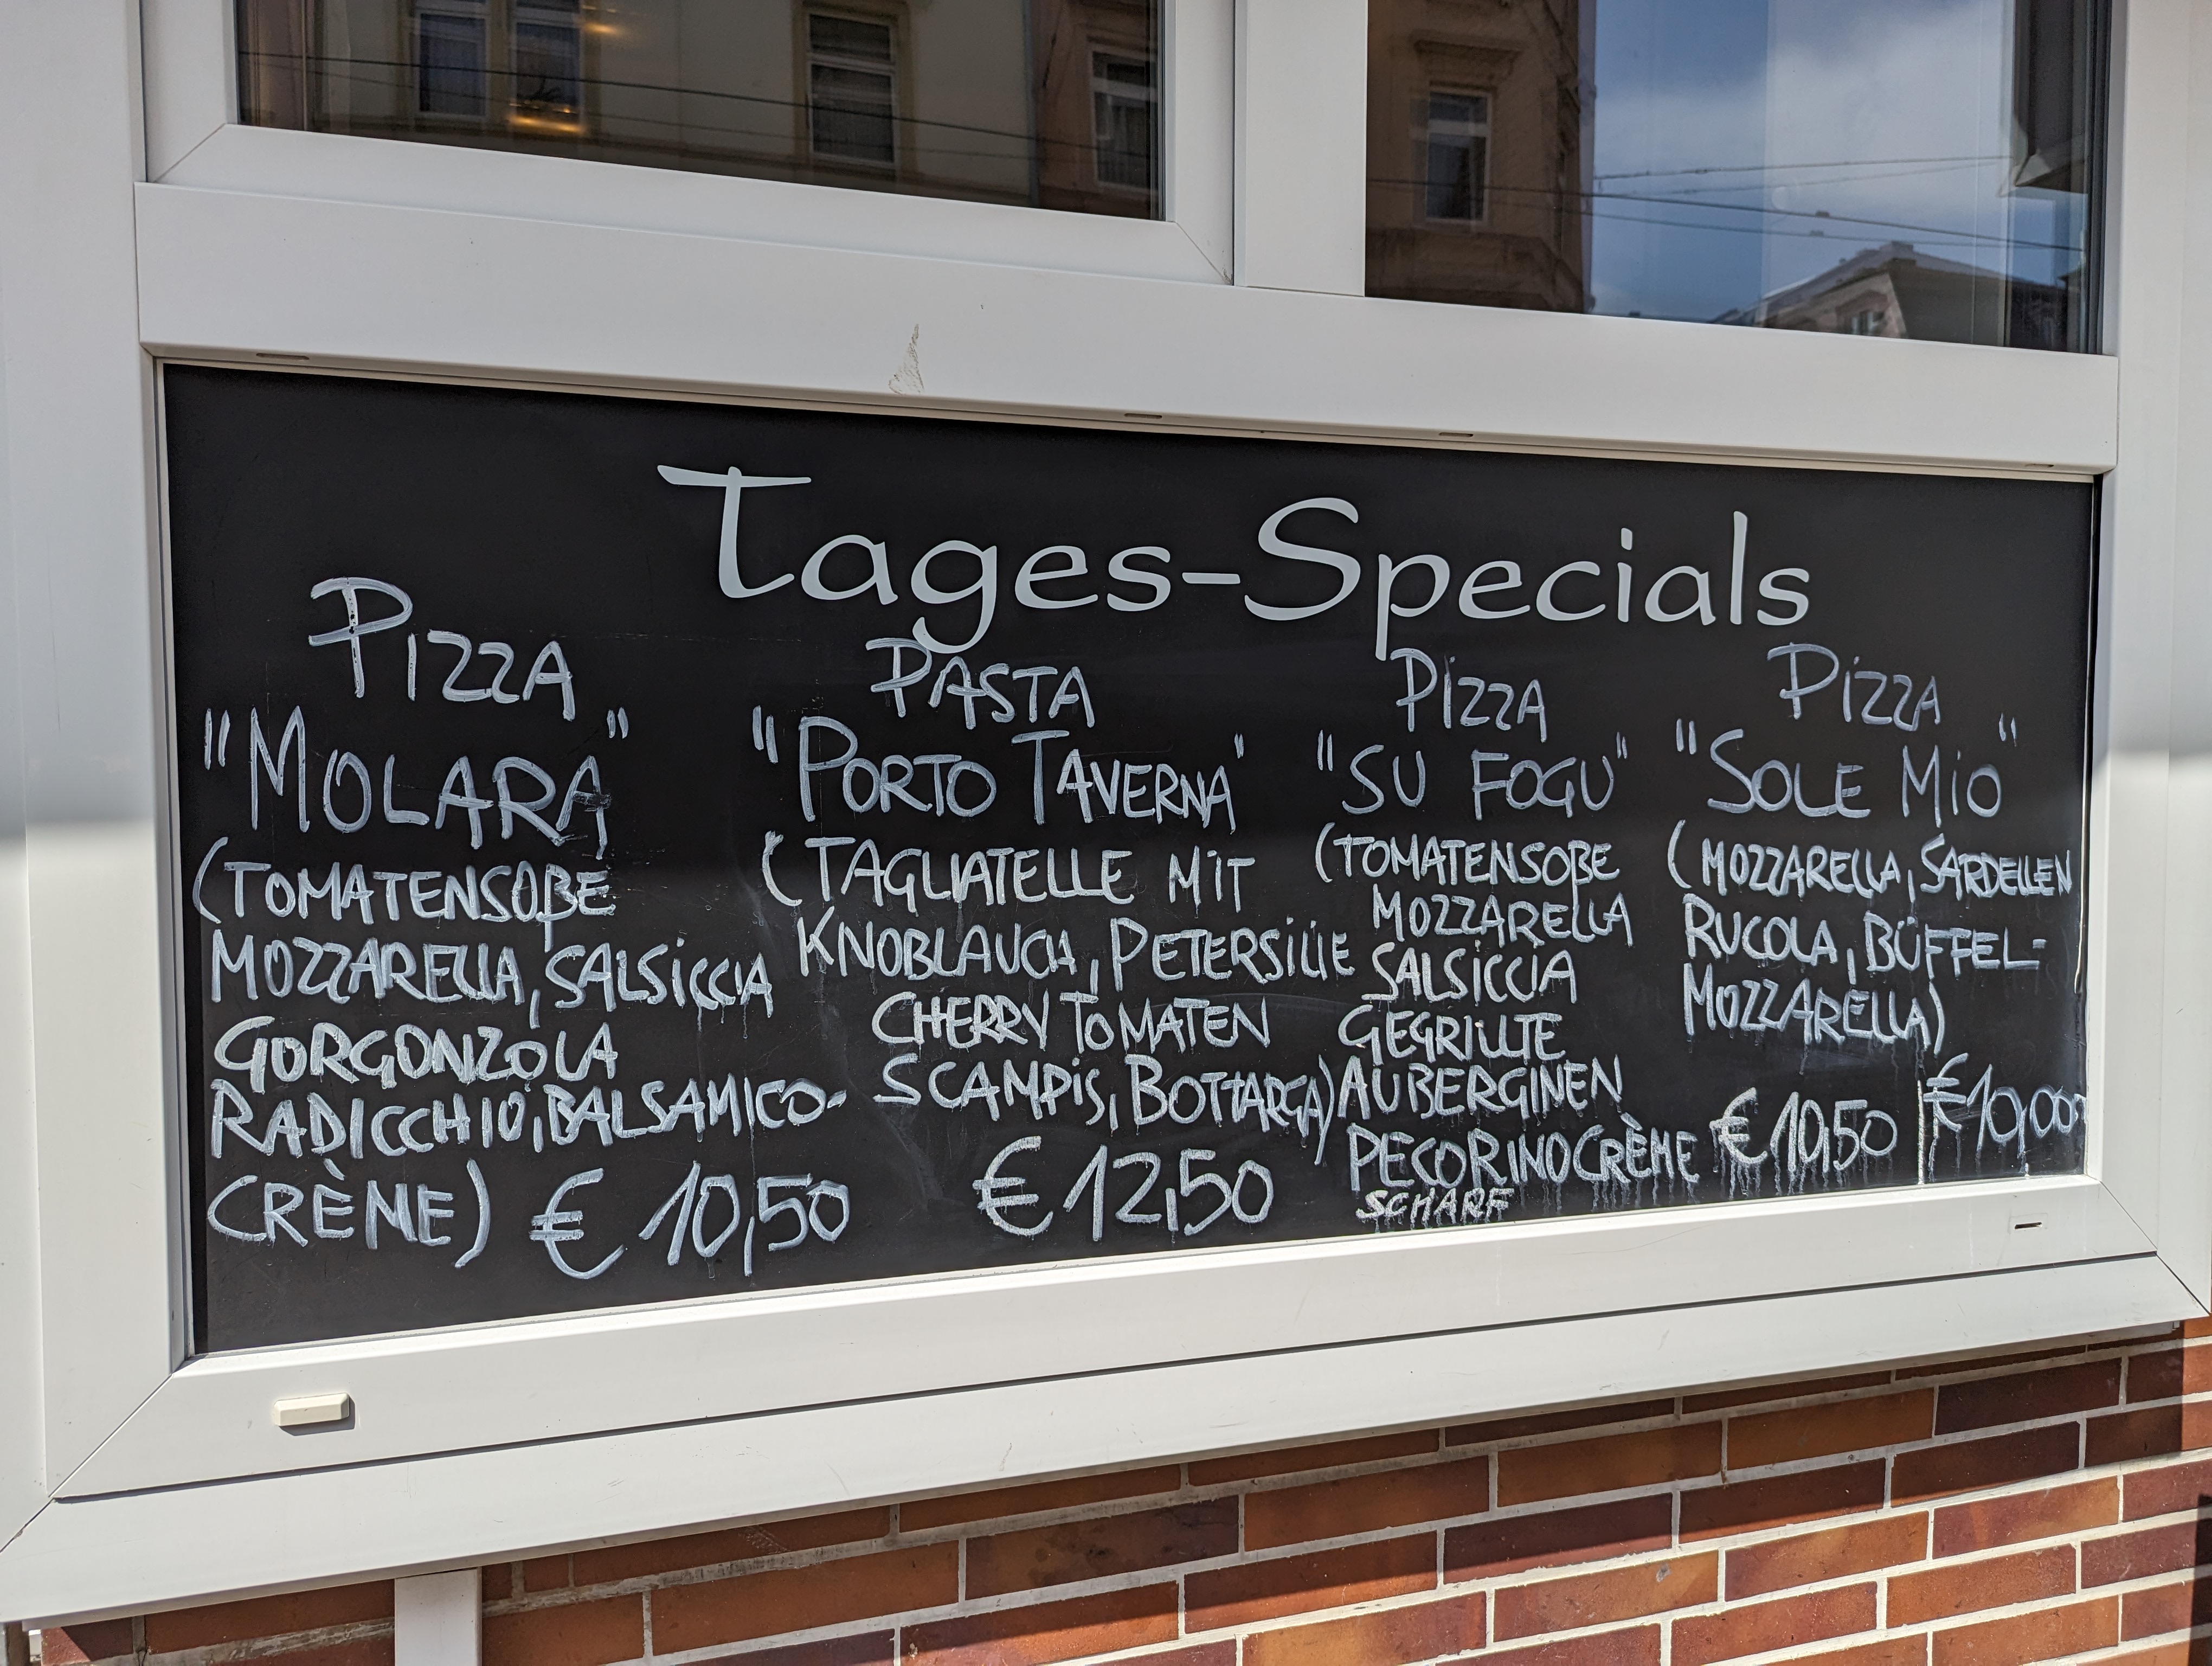 Tages-Specials
PIZZA
"MOLARA"
(TOMATENSOßE
MOZZARELLA, SALSICCIA
GORGONZOLA
RADICCHIO, BALSAMICO-
CRÈME) € 10,50
PASTA
"PORTO TAVERNA"
(TAGLIATELLE MIT
KNOBLAUCH, PETERSILIE
CHERRY TOMATEN
SCAMPIS, BOTTARGA)
€ 12,50
PIZZA
"SU FOGU"
(TOMATENSOßE
MOZZARELLA
SALSICCIA
GEGRILLTE
AUBERGINEN
PECORINOCRÈME € 10,50
SCHARF
PIZZA
"SOLE MIO"
(MOZZARELLA, SARDELLEN
RUCOLA, BÜFFEL-
MOZZARELLA)
€ 10,00